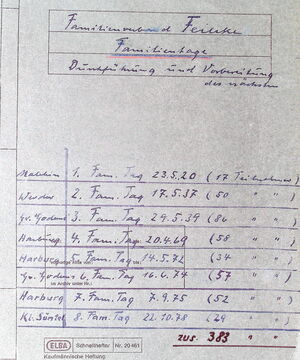 Familienverband
Familientage
Durchführung und Vorbereitung
des nächsten
Malchin 1. Fam. Tag 23.5.20 (17 Teilnehmer)
2. Fam. Tag 17.5.37 (50 " "
Gr. Godens 3. Fam. Tag 29.5.39 (86 " "
Harburg 4. Fam. Tag 20.4.69 (58 " "
Harburg 5. Fam. Tag 14.5.72 (34 " "
Gr. Godens 6. Fam. Tag 16.6.74 (57 " "
im Archiv unter Nr.:
Harburg 7. Fam. Tag 7.9.75 (52 " "
Kl. Süntel 8. Fam. Tag 22.10.78 (29 " "
zus. 383 " "
ELBA Schnellhefter Nr. 20 461
Kaufmännische Heftung